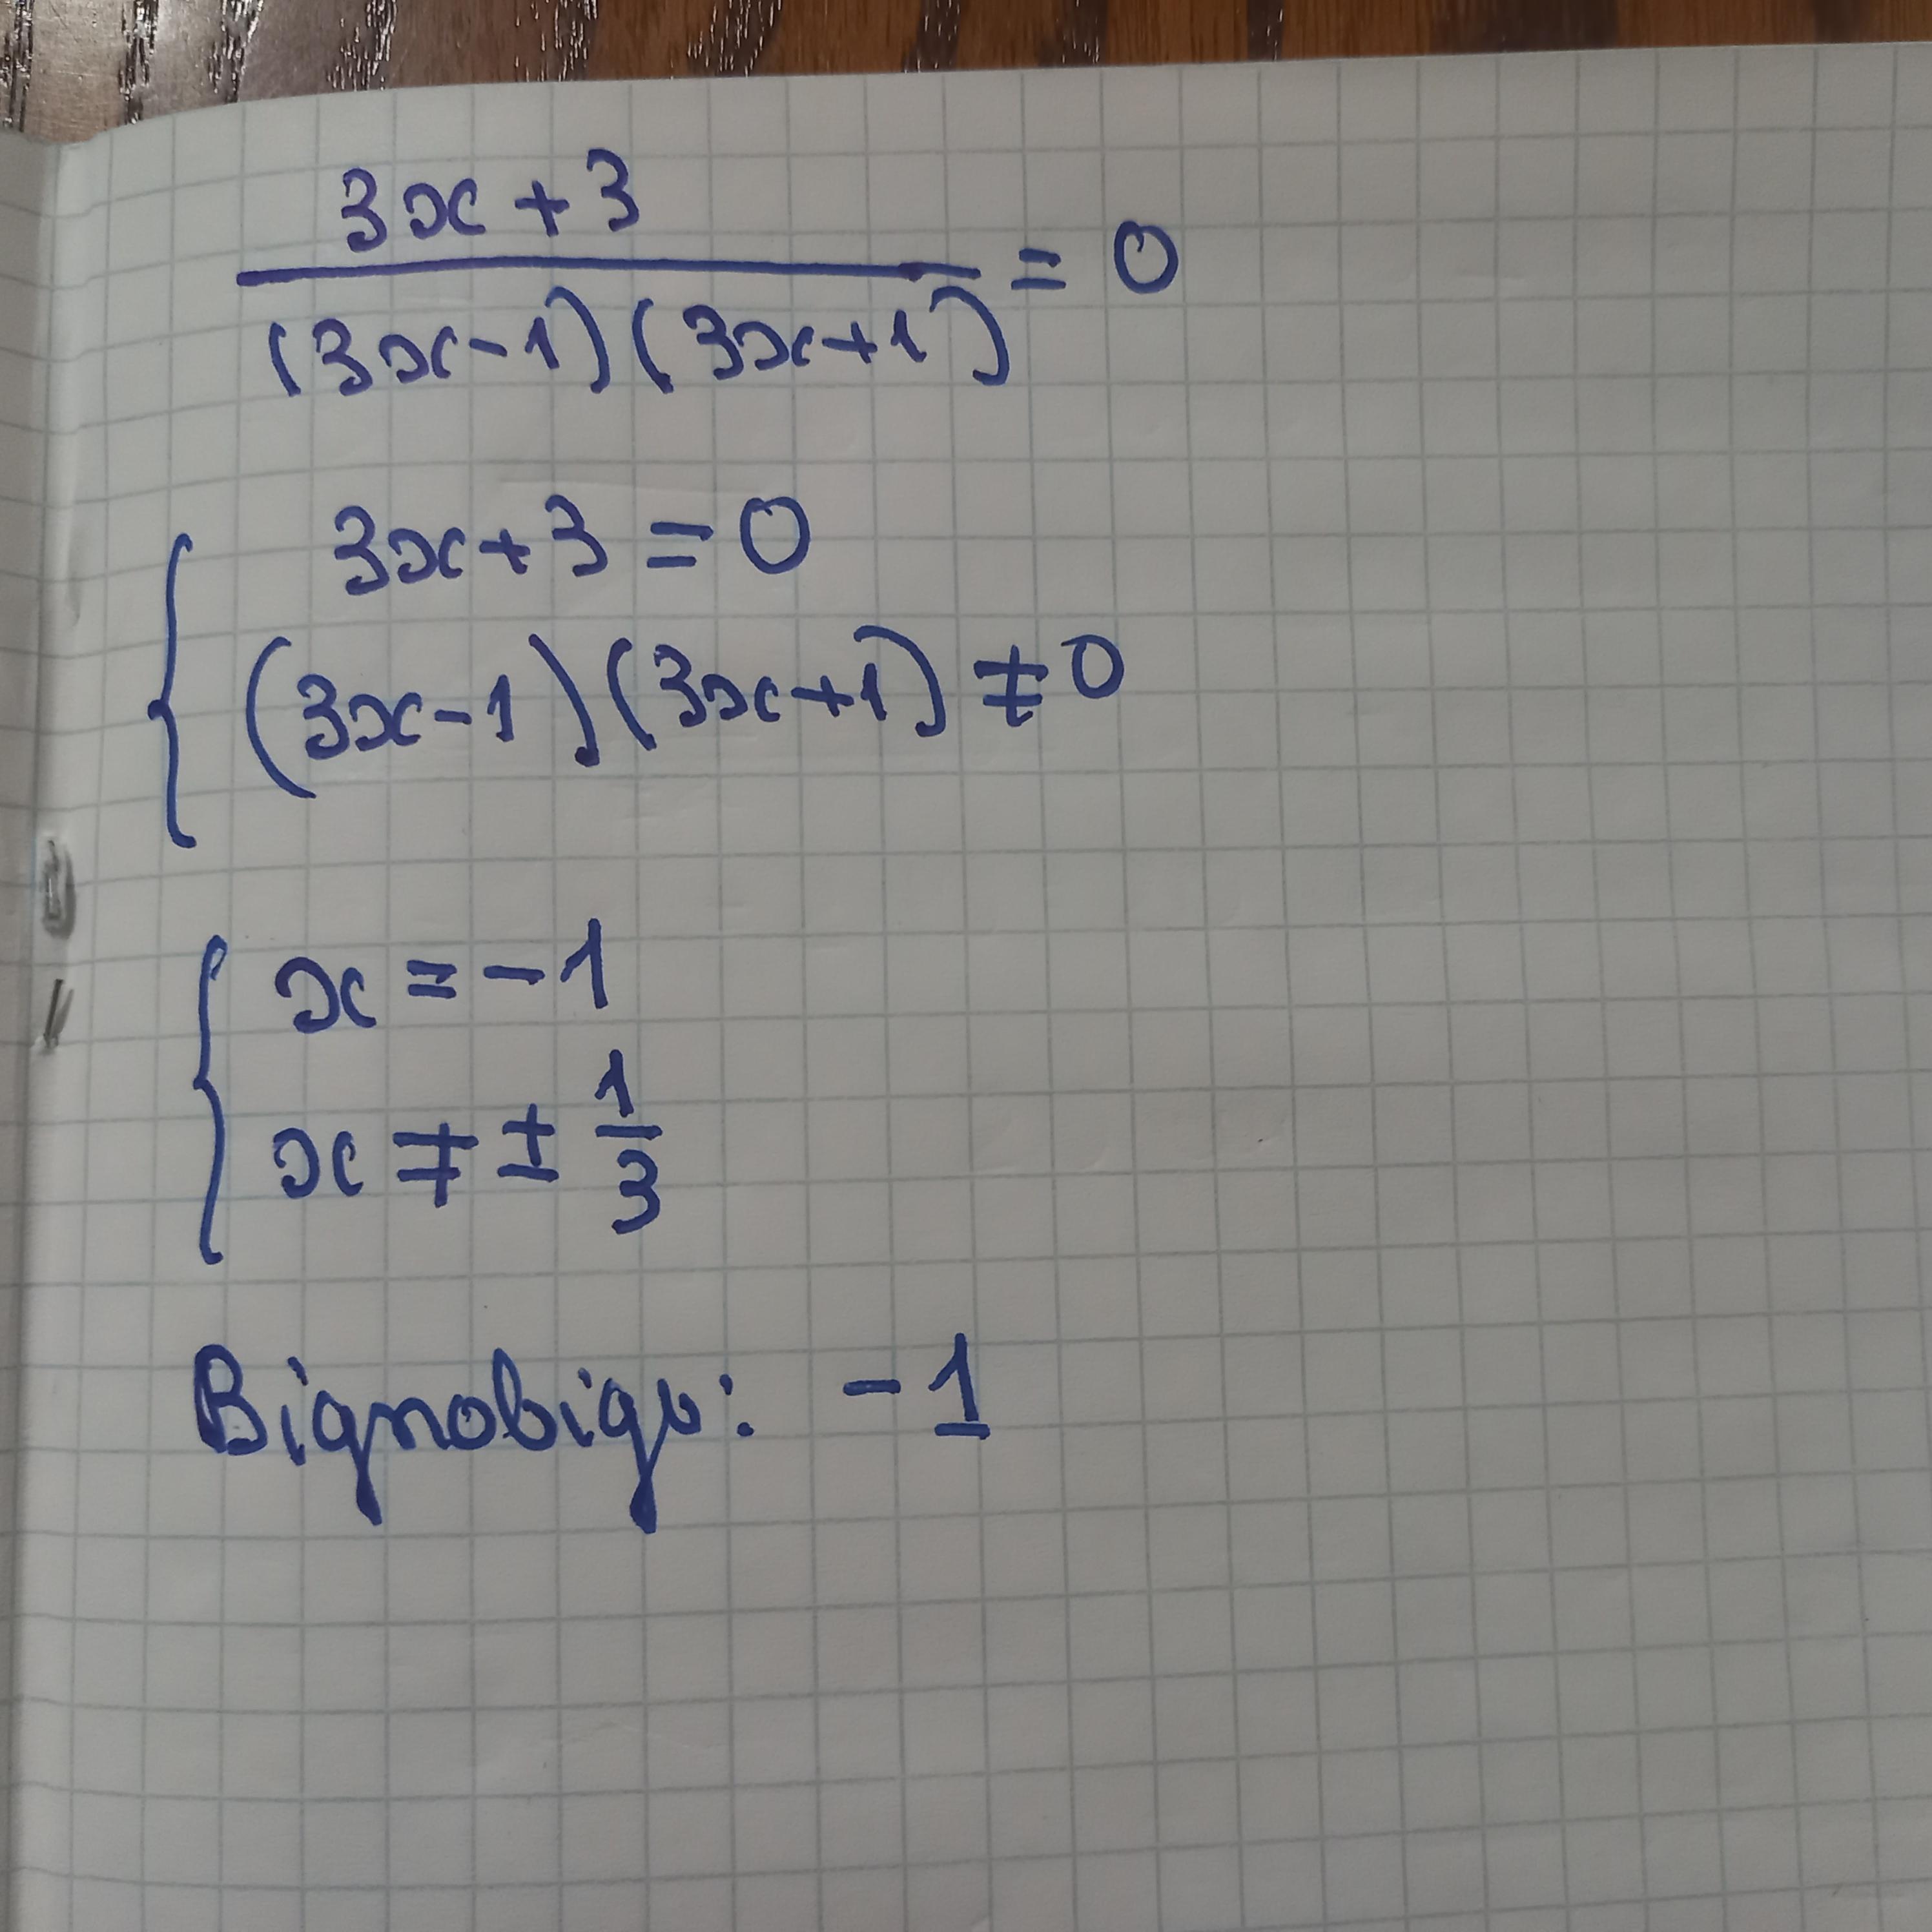 (3x + 3) / ((3x - 1)(3x + 1)) = 0
3x + 3 = 0
(3x - 1)(3x + 1) ≠ 0
x = -1
x ≠ ± 1/3
Відповідь: -1